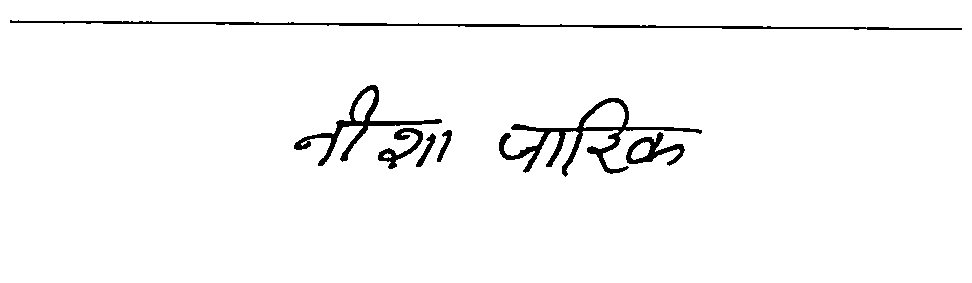 नीशा जारिक